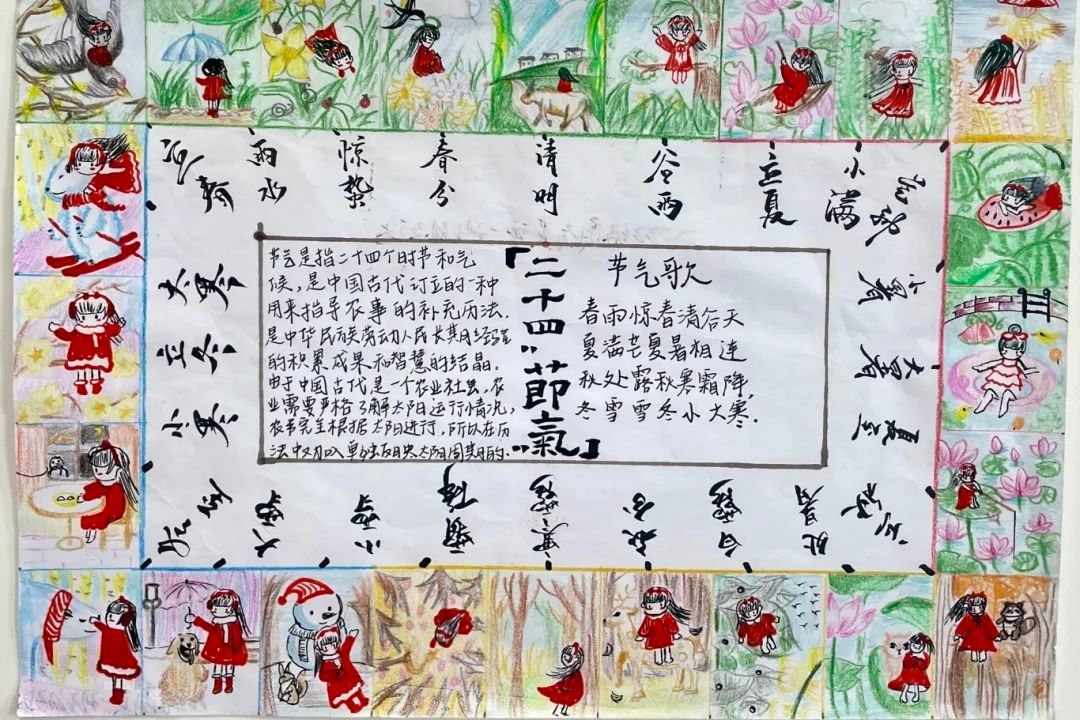 立春
雨水
惊蛰
春分
清明
谷雨
立夏
小满
芒种
大寒
立冬
小寒
节气是指二十四个时节和气
候,是中国古代订立的一种
用来指导农事的补充历法,
是中华民族劳动人民长期经验
的积累成果和智慧的结晶。
由于中国古代是一个农业社会,农
业需要严格了解太阳运行情况,
农事完全根据太阳进行,所以在历
法中又加入单独反映太阳周期的
「二十四“節氣”」
节气歌
春雨惊春清谷天
夏满芒夏暑相连
秋处露秋寒霜降,
冬雪雪冬小大寒.
小暑
大暑
夏至
冬至
大雪
小雪
霜降
寒露
秋分
白露
处暑
立秋